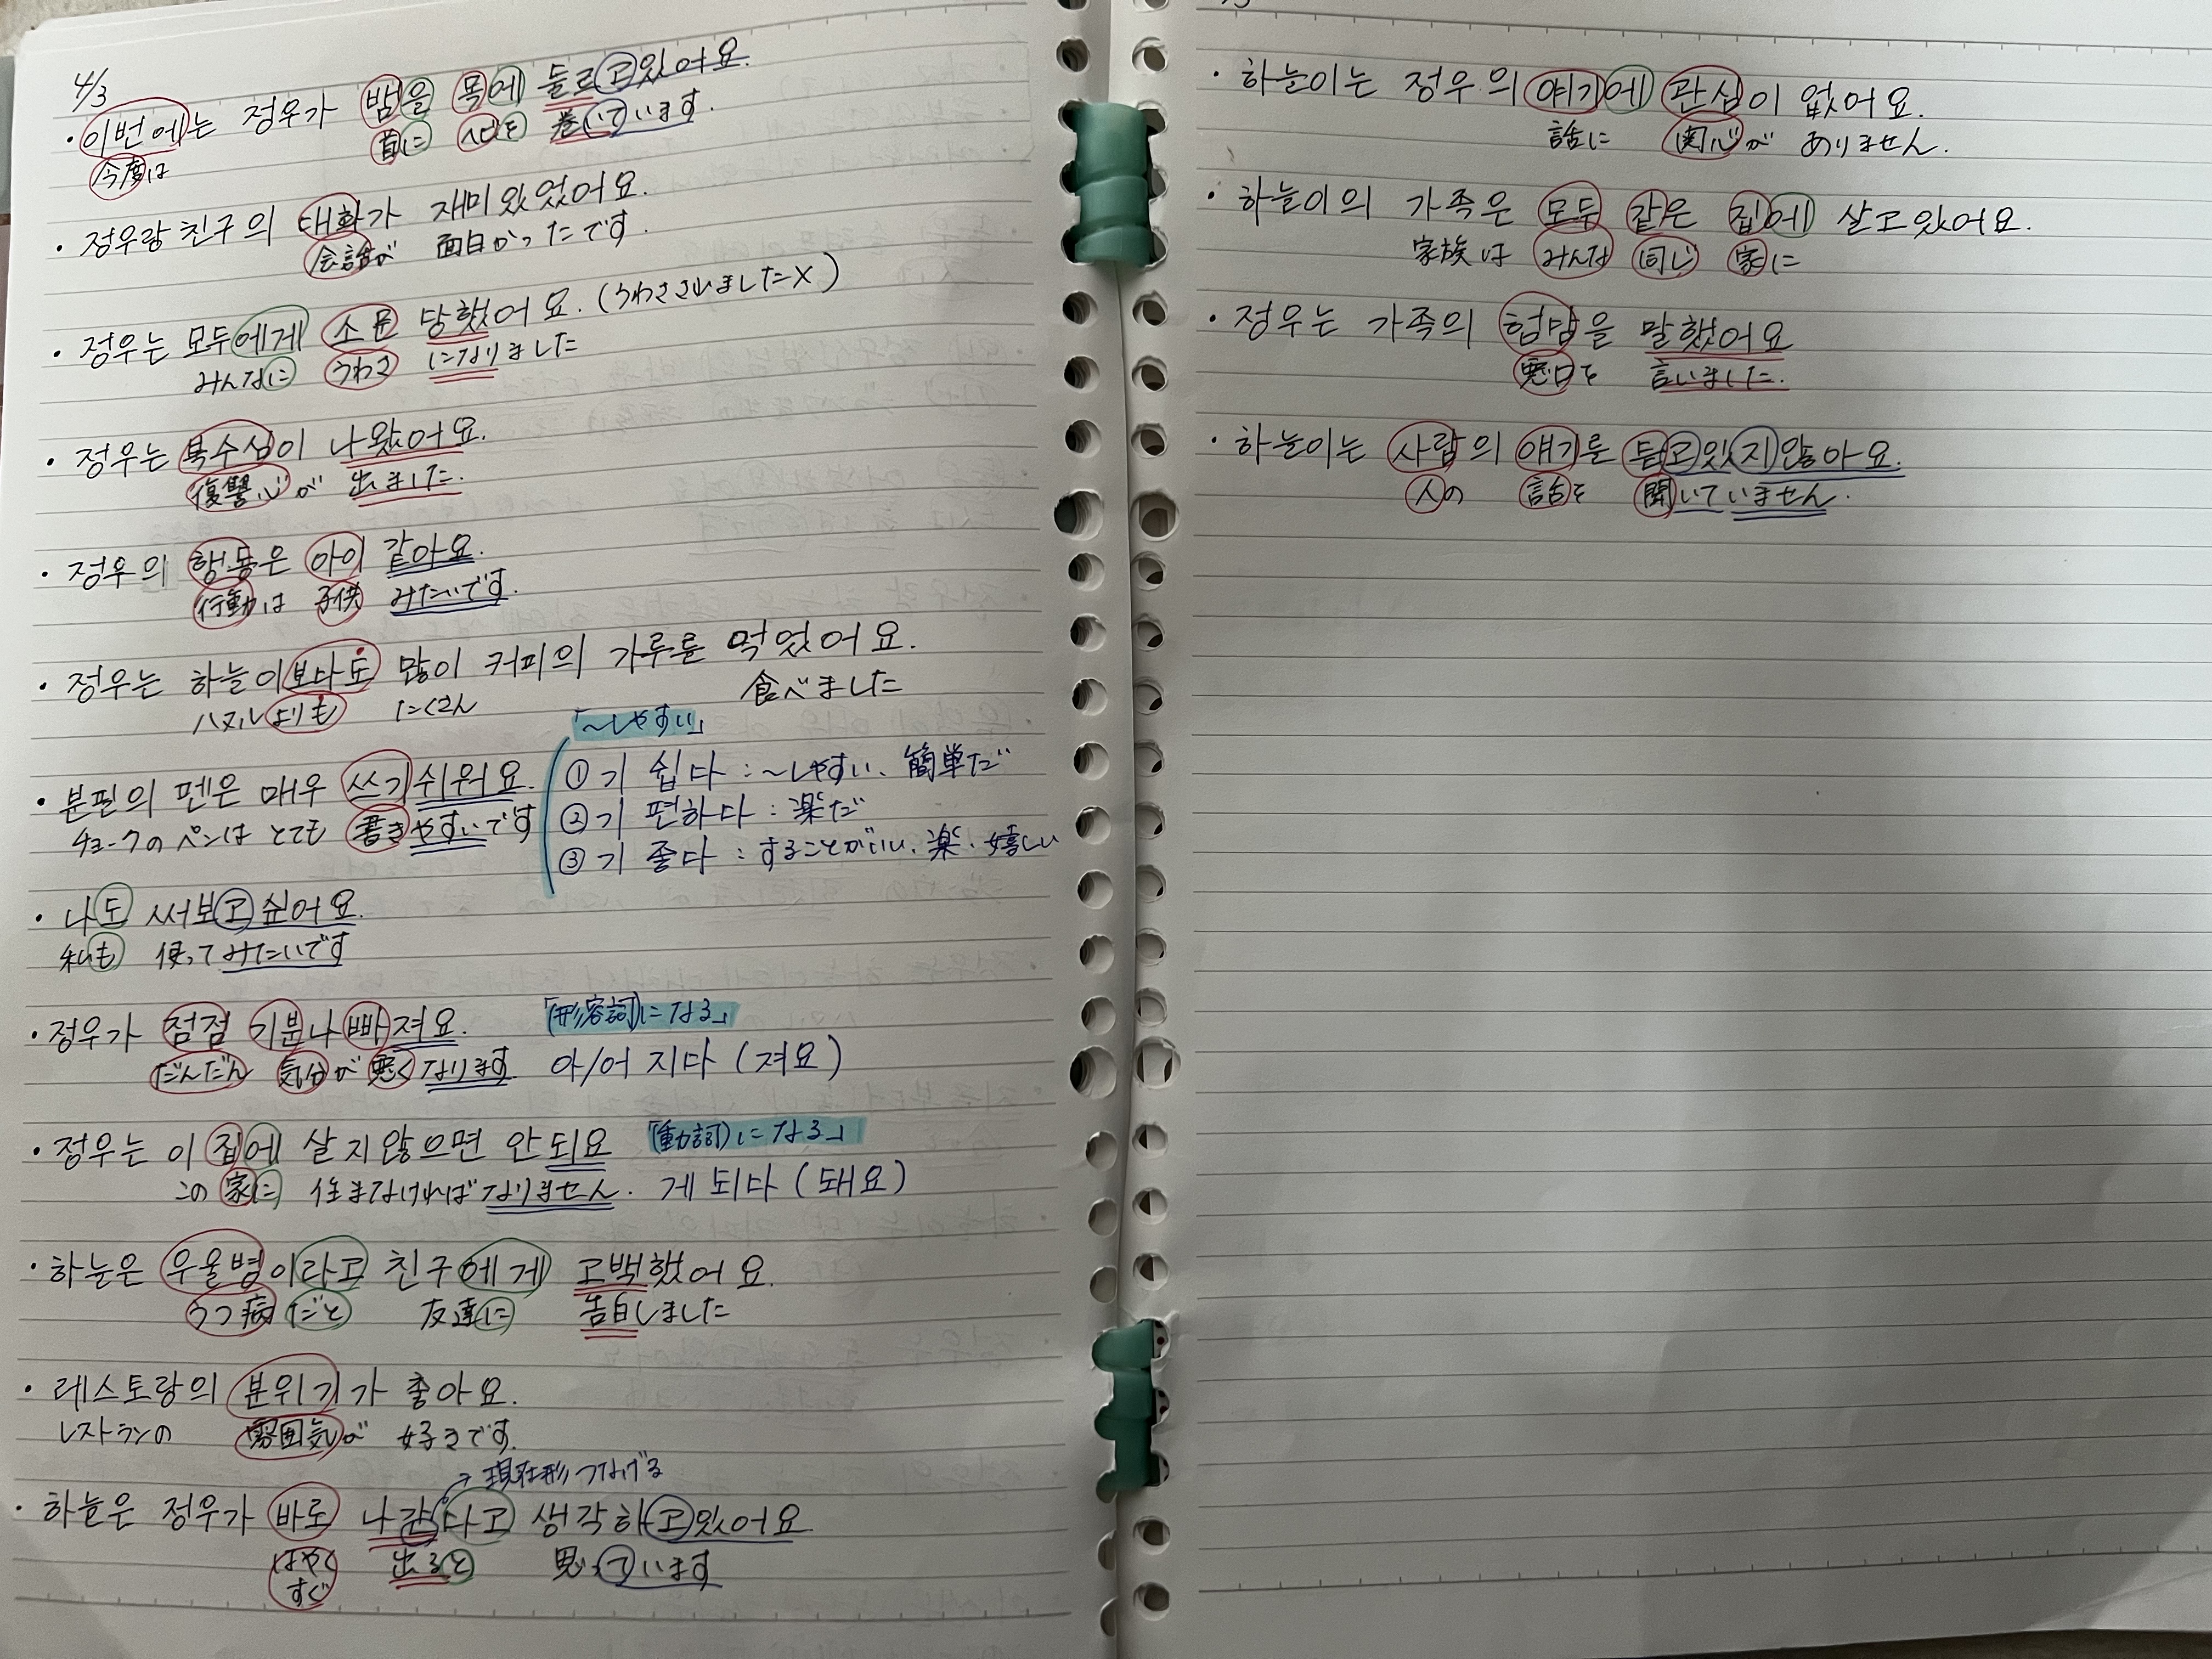 4/3
・이번에는 정우가 뱀을 목에 들르고있어요.
今度は 首に ヘビを 巻いています.
・정우랑 친구의 대화가 재미있었어요.
会話が 面白かったです.
・정우는 모두에게 소문 당했어요. (うわさされましたX)
みんなに うわさ になりました
・정우는 복수심이 나왔어요.
復讐心が 出ました.
・정우의 행동은 아이 같아요.
行動は 子供 みたいです.
・정우는 하늘이보다도 많이 커피의 가루를 먹었어요.
ハヌルよりも たくさん 食べました
「〜しやすい」
・분필의 펜은 매우 쓰기쉬워요.
チョークのペンはとても 書きやすいです
①기 쉽다 : 〜しやすい、簡単だ
②기 편하다 : 楽だ
③기 좋다 : することがいい、楽、嬉しい
・나도 써보고싶어요.
私も 使ってみたいです
・정우가 점점 기분나빠져요.
だんだん 気分が悪くなります
「(形容詞)になる」
아/어 지다 (져요)
・정우는 이 집에 살지않으면 안되요
この家に 住まなければなりません.
「(動詞)になる」
게 되다 (돼요)
・하늘은 우울병이라고 친구에게 고백했어요.
うつ病だと 友達に 告白しました
・레스토랑의 분위기가 좋아요.
レストランの 雰囲気が 好きです.
→現在形つなげる
・하늘은 정우가 바로 나간다고 생각하고있어요.
はやく 出ると 思っています
すぐ
・하늘이는 정우의 얘기에 관심이 없어요.
話に 関心が ありません.
・하늘이의 가족은 모두 같은 집에 살고있어요.
家族は みんな 同じ 家に
・정우는 가족의 험담을 말했어요
悪口を 言いました.
・하늘이는 사람의 얘기를 듣고있지않아요.
人の 話を 聞いていません.